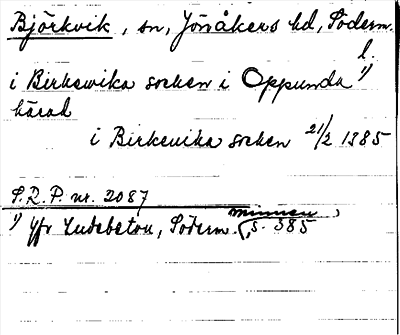 Björkvik, sn, Jönåkers hd, Söderm.
l.
i Birkewika socken i Oppunda 1)
härad
i Birkeuika socken 21/2 1385
S.R.P. nr. 2087
1) Jfr Ludebeton, Söderm. minnen, s. 385